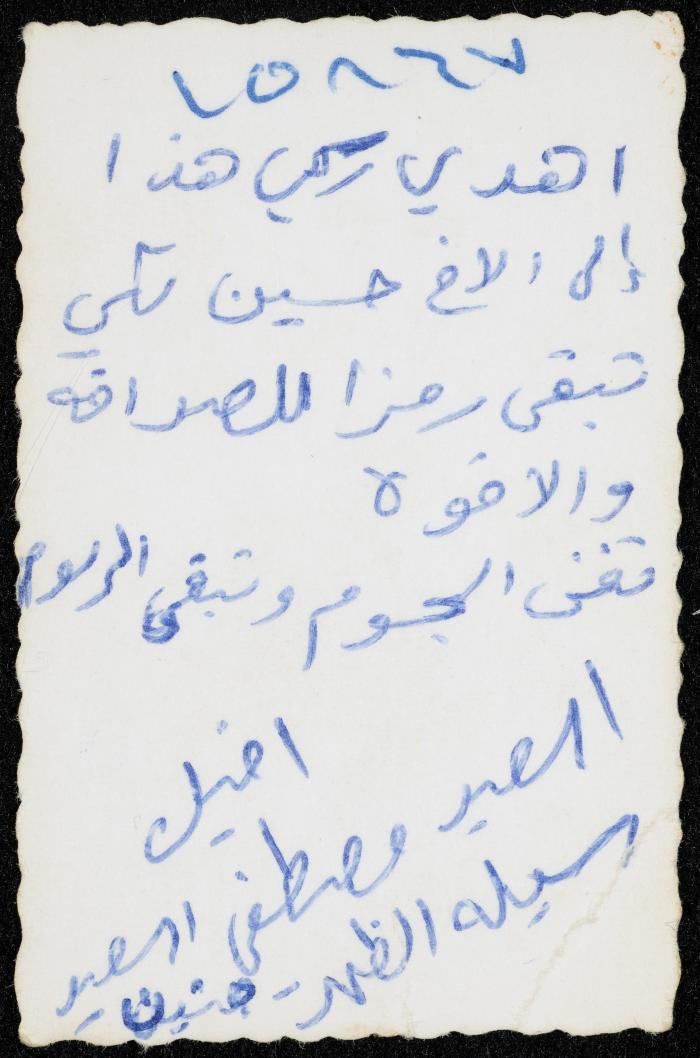 اهدي رسمي هذا
إلى الاخ حسين
تبقى رمزا للصداقه
والاخوة
تفنى الجسوم وتبقى الرسوم
اخيك
العبد مصطفى العبد
السيله الظهر - جنين